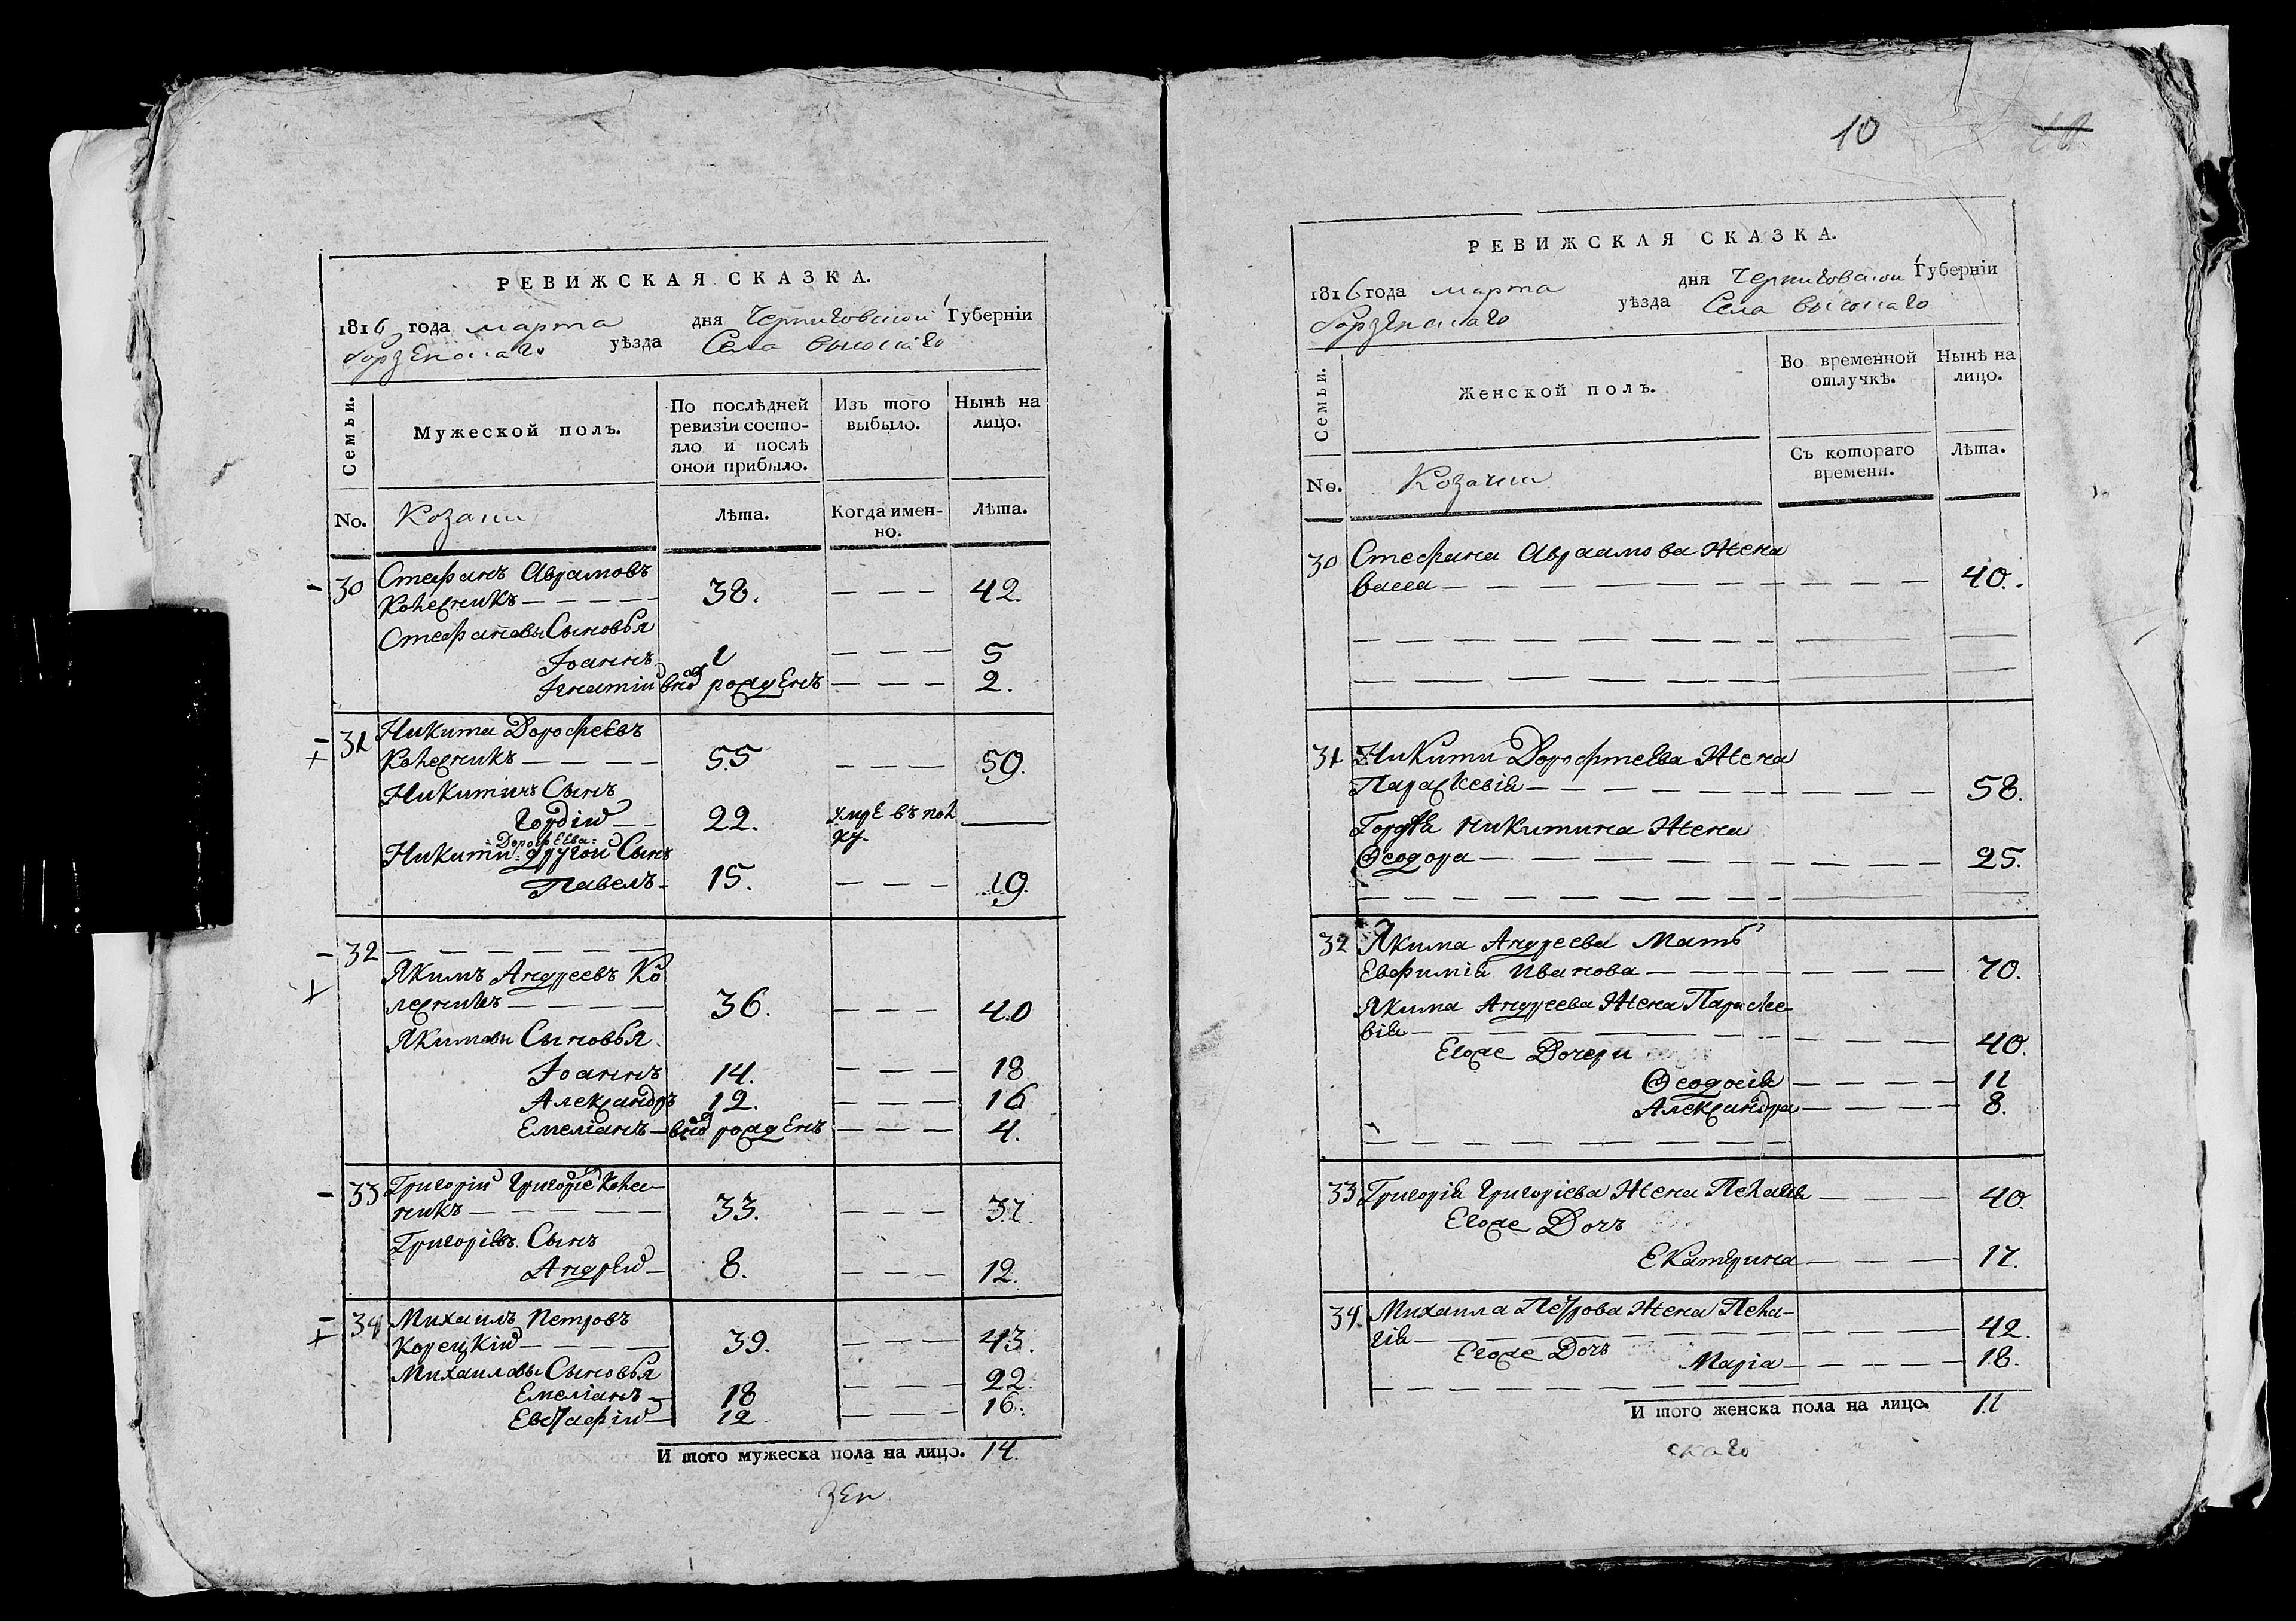 РЕВИЖСКАЯ СКАЗКА.
1816 года марта дня Черниговской Губерніи
Борзенскаго уѣзда Села высокаго
Семьи.
Мужеской полъ.
По послѣдней ревизіи состо-
яло и послѣ
оной прибыло.
Изъ того
выбыло.
Нынѣ на
лицо.
No. Козаки Лѣта. Когда имен-
но. Лѣта.
30 Стефанъ Аврамовъ
Колесникъ 38. 42.
Стефановы Сыновья
Іоаннъ 1 5
Игнатій рожденъ 2.
31 Никита Дорофеевъ
Колесникъ 55 59.
Никитинъ Сынъ
Гордій 22. умре въ
Дорофеева
Никиты другой Сынъ
Павелъ 15. 19.
32
Якимъ Андреевъ Ко
лесникъ 36. 40
Якимовы Сыновья
Іоаннъ 14. 18
Александръ 12. 16
Емеліанъ рожденъ 4.
33 Григорій Григорье Колес-
никъ 33. 37.
Григоріевъ Сынъ
Андрей 8. 12.
34 Михаилъ Петровъ
Корецкій 39. 43.
Михаиловы Сыновья
Емеліанъ 18 22.
Евстафій 12 16.
И того мужеска пола на лицо. 14.
зен
10
РЕВИЖСКАЯ СКАЗКА.
1816 года марта дня Черниговской Губерніи
Борзенскаго уѣзда Села высокаго
Семьи.
Женской полъ.
Во временной
отлучкѣ.
Нынѣ на
лицо.
Съ котораго
времени.
Лѣта.
No. Козачки
30 Стефана Авраамова Жена
Васса 40.
31 Никиты Дорофтеева Жена
Параскевія 58.
Гордѣя Никитина Жена
Ѳеодора 25.
32 Якима Андреева Мать
Евфимія Иванова 70.
Якима Андреева Жена Параске-
вія 40.
Егоже Дочери
Ѳеодосія 11
Александра 8.
33 Григорія Григоріева Жена Пелагія 40.
Егоже Дочь
Екатерина 17.
34 Михаила Петрова Жена Пела-
гія 42.
Егоже Дочь Марія 18.
И того женска пола на лицо. 11
скаго